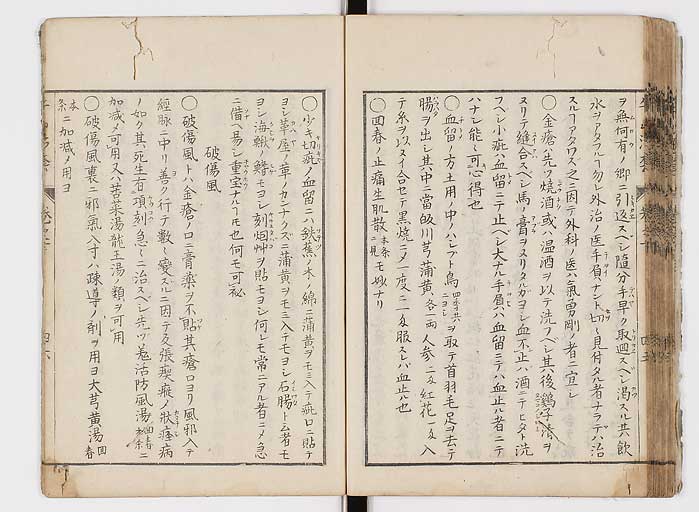 ヲ無何有ノ郷ニ引返スベシ随分手早ク取廻スベシ渇スル共飲
水ヲアタフルヿ勿レ外治ノ医手負ナント切々見付タル者ナラテハ治
スルヿアタワズ之ニ因テ外科ノ医ハ氣勇剛ノ者ニ宜シ
○金瘡ハ先ツ焼酒或ハ温酒ヲ以テ洗フベシ其後鷄子清ヲ
ヌリテ縫合スベシ馬ノ膏ヲヌリタルガヨシ血不止ハ酒ニテヒタト洗
フベシ小疵ハ血留ニテ止ベシ大ナル手屓ハ血留ニテハ血止ル者ニテ
ハナシ能々可心得也
○血留ノ方土用ノ中ノハシブト烏ヲ取テ首羽毛足ヲ去テ
腸ヲ出シ其中ニ當皈川芎蒲黄各一両人参二匁紅花一匁入
テ糸ヲ以スイ合セテ黒焼ニメ一度ニ一匁服スレバ血止ル也
○回春ノ止痛生肌散本条ニ見モ妙ナリ
○少キ切疵ノ血留ニハ鉄蕉ノ木ノ綿ニ蒲黄ヲモミ入テ疵口ニ貼テ
ヨシ草屋ノ草ノカンナクズニ蒲黄ヲモミ入テモヨシ石腸ト云者モ
ヨシ海鰍ノ鰭モヨシ刻烟艸ヲ貼モヨシ何レモ常ニアル者ニメ急
ニ備ヘ易シ重宝ナルヿモ也何モ可秘
破傷風
○破傷風トハ金瘡ノ口ニ膏藥ヲ不貼其瘡口ヨリ風邪入テ
經脉ニ中リ善ク行テ數〻變スルニ因テ反張瘈瘲ノ状痓病
ノ如ク其死生在項刻急ニ治スベシ先ツ羗活防風湯回春ニ
加減メ可用又ハ苦菜湯龍王湯ノ類ヲ可用
○破傷風裏ニ邪氣入于ハ疎導ノ剤ヲ用ヨ大芎黄湯回春
本条ニ加減メ用ヨ